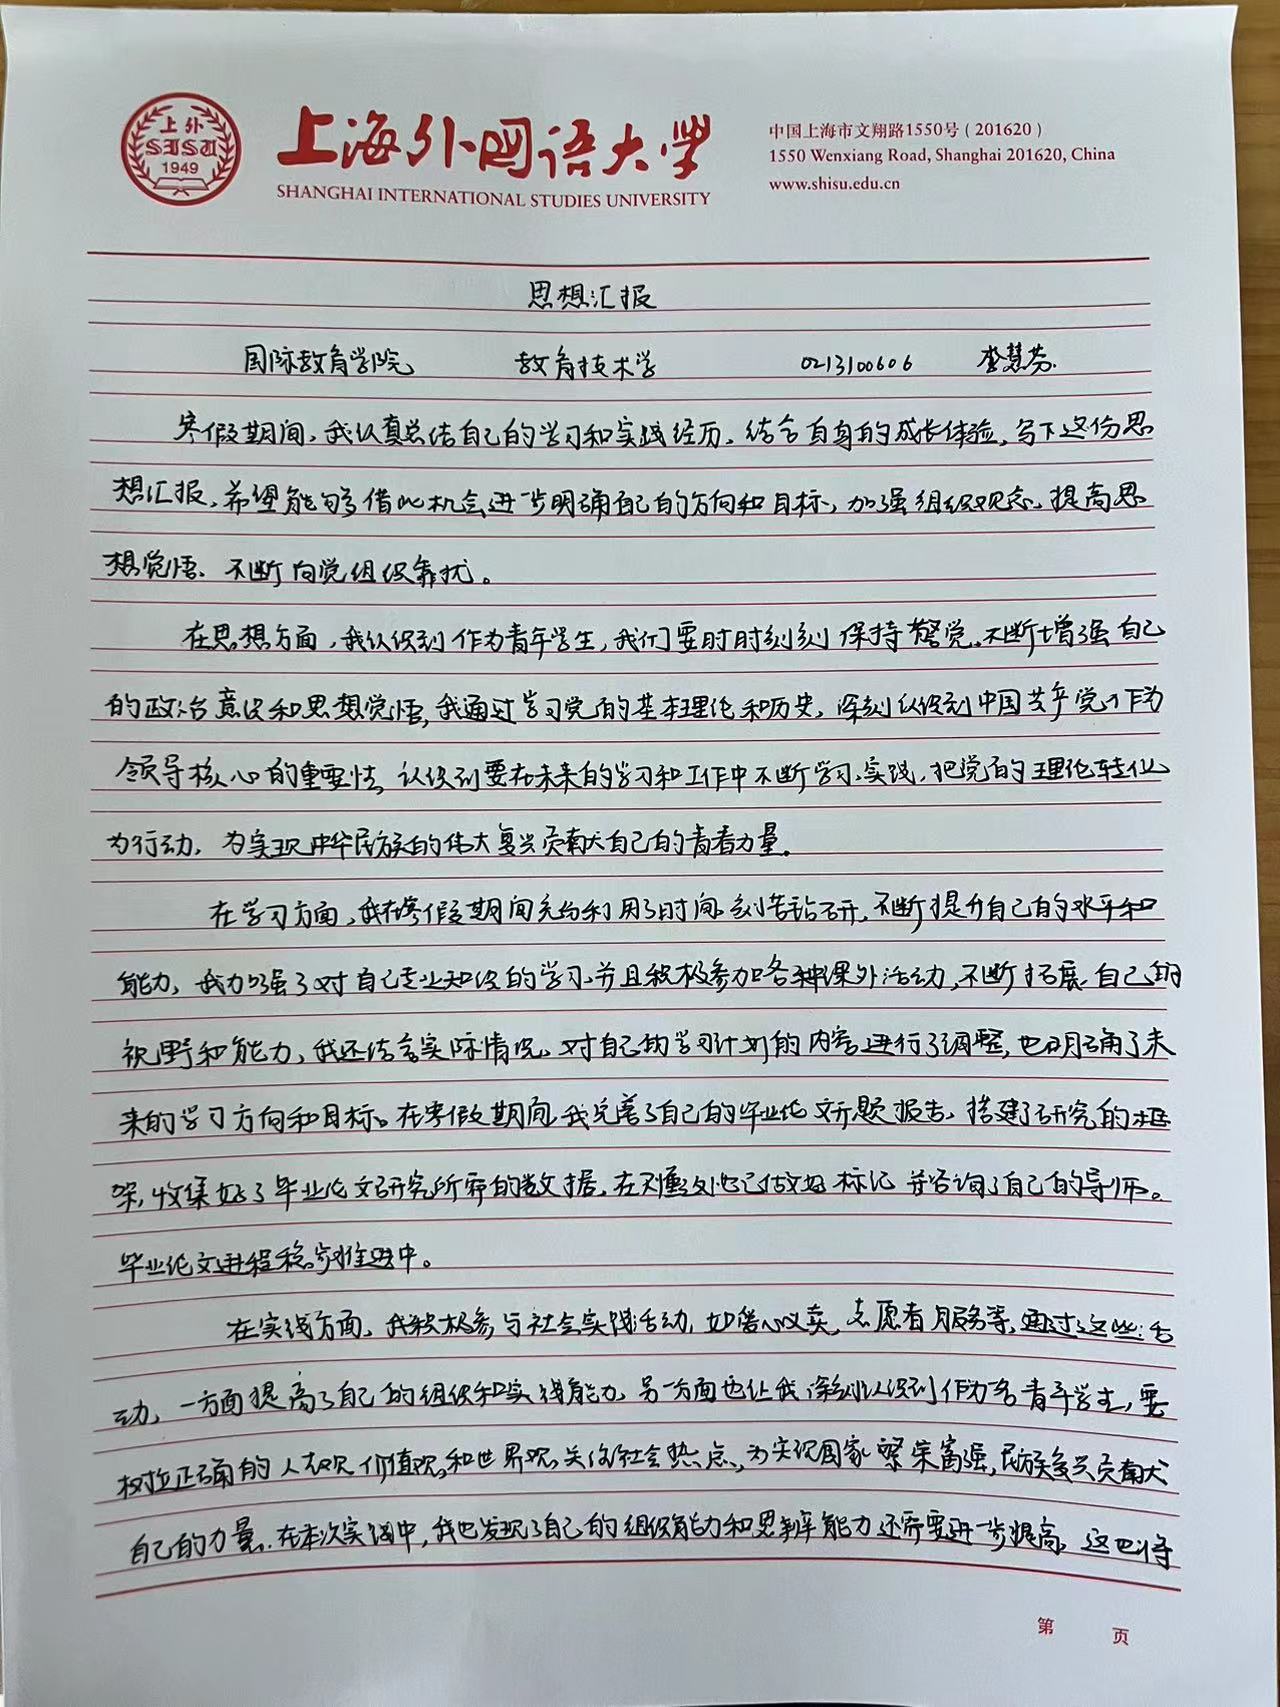 上外
SISU
1949
上海外国语大学
SHANGHAI INTERNATIONAL STUDIES UNIVERSITY
中国上海市文翔路1550号（201620）
1550 Wenxiang Road, Shanghai 201620, China
www.shisu.edu.cn
思想汇报
国际教育学院 教育技术学 0213100606 李慧芬
寒假期间，我认真总结自己的学习和实践经历，结合自身的成长体验，写下这份思
想汇报，希望能够借此机会进一步明确自己的方向和目标，加强组织观念、提高思
想觉悟、不断向党组织靠拢。
在思想方面，我认识到作为青年学生，我们要时时刻刻保持警觉，不断增强自己
的政治意识和思想觉悟，我通过学习党的基本理论和历史，深刻认识到中国共产党作为
领导核心的重要性，认识到要在未来的学习和工作中不断学习、实践，把党的理论转化
为行动，为实现中华民族的伟大复兴贡献自己的青春力量。
在学习方面，我在寒假期间充分利用了时间，刻苦钻研，不断提升自己的水平和
能力，我加强了对自己专业知识的学习，并且积极参加各种课外活动，不断拓展自己的
视野和能力，我还结合实际情况，对自己的学习计划的内容进行了调整，也明确了未
来的学习方向和目标。在寒假期间，我完善了自己的毕业论文开题报告，搭建了研究的框
架，收集好了毕业论文研究所需的数据，在对重处也已做好标记，并咨询了自己的导师。
毕业论文进程稳步推进中。
在实践方面，我积极参与社会实践活动，如爱心义卖，志愿者服务等，通过这些活
动，一方面提高了自己的组织和实践能力，另一方面也让我深刻认识到作为一名青年学生，要
树立正确的人生观、价值观，和世界观，关注社会热点，为实现国家繁荣富强，民族复兴贡献
自己的力量。在本次实践中，我也发现了自己的组织能力和思辨能力还需要进一步提高，这也将
第 页